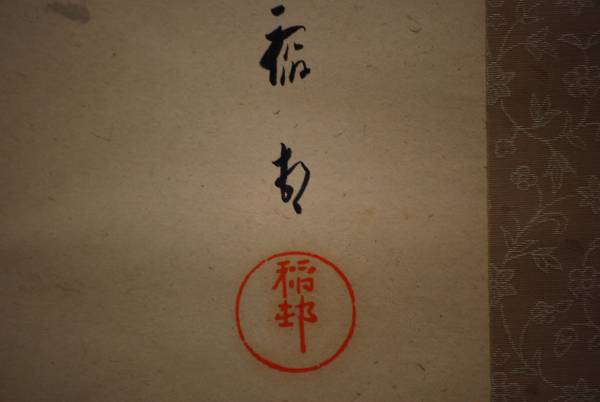 稲邨
稲邨